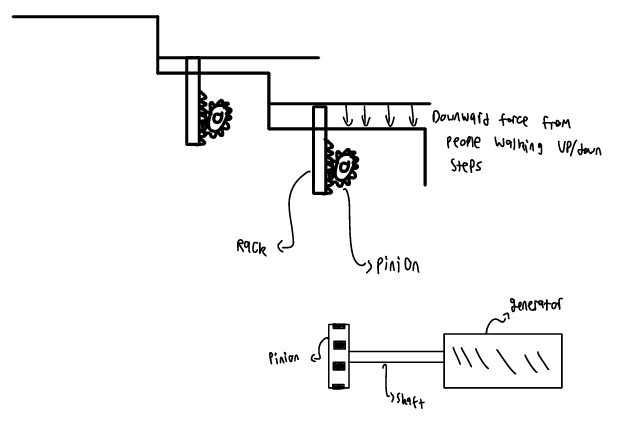 Downward force from
people walking up/down
steps
Rack
Pinion
generator
Pinion
shaft